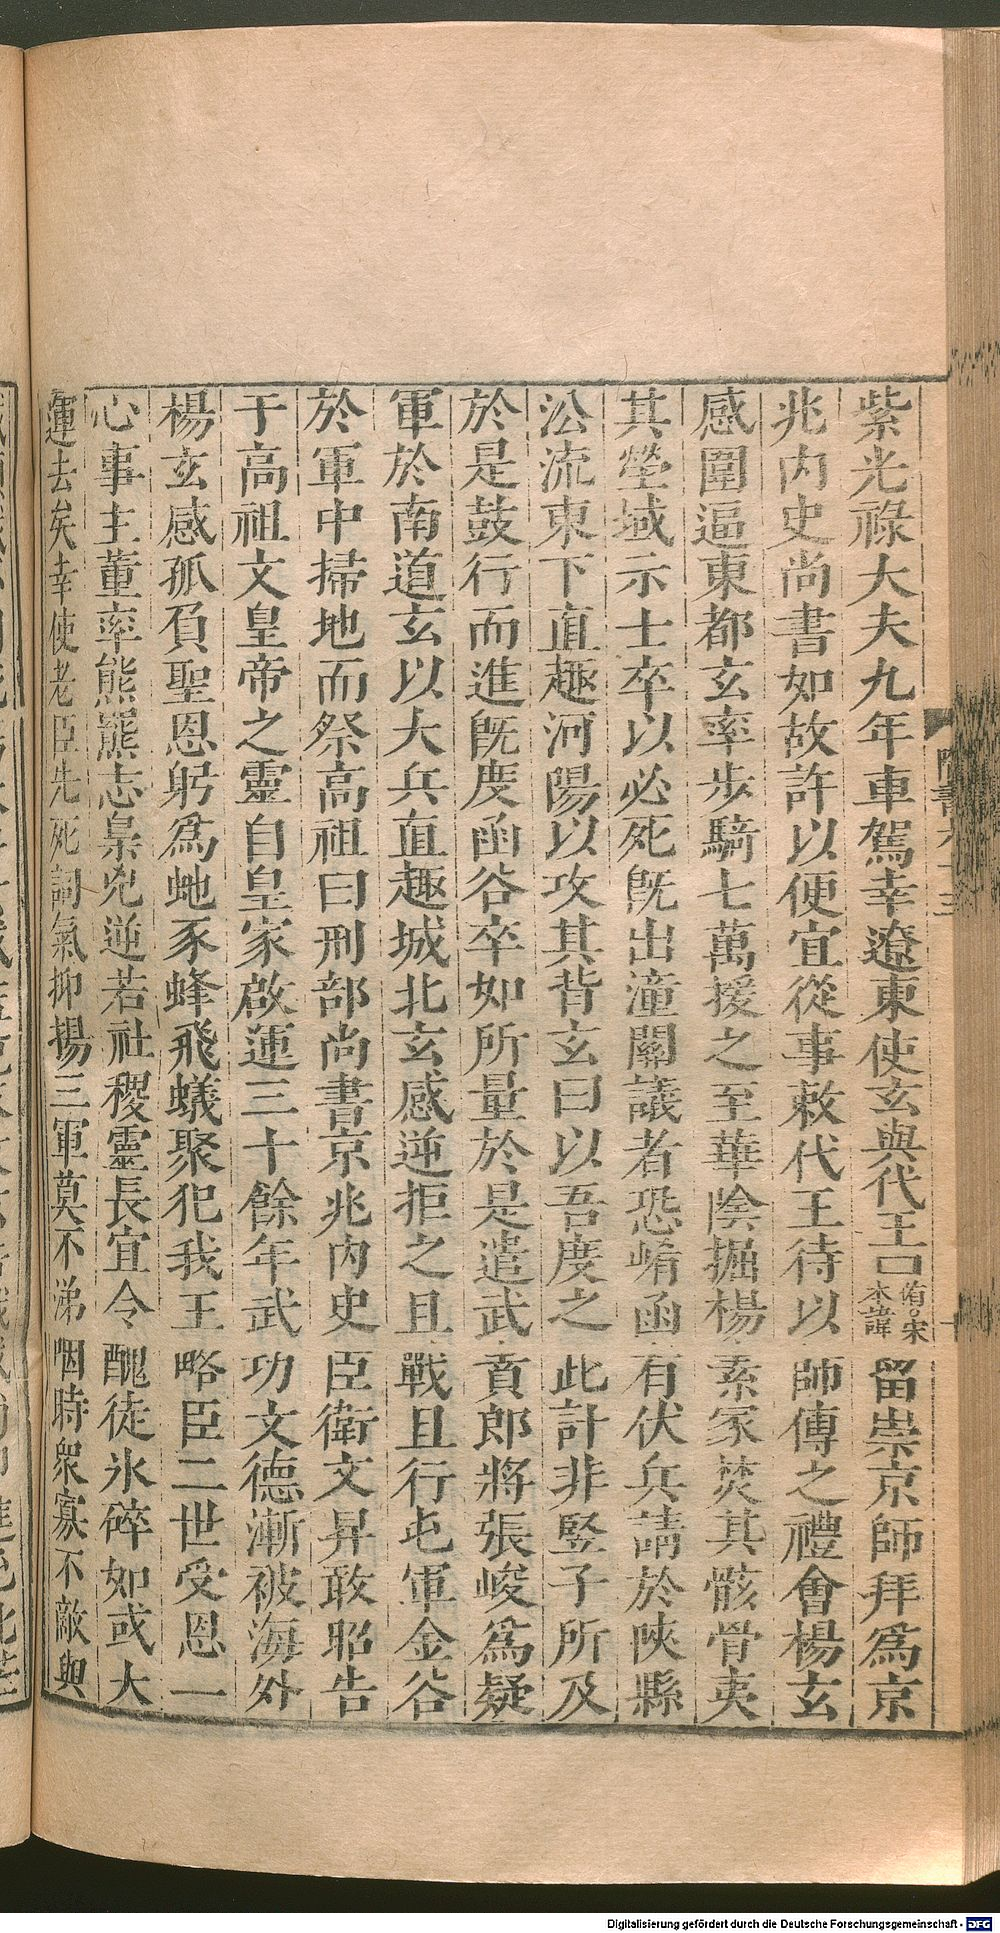 紫光祿大夫九年車駕幸遼東使玄與代王口侑○宋本諱留崇京師拜爲京
兆内史尚書如故許以便宜從事敕代王待以師傅之禮會楊玄
感圍逼東都玄率步騎七萬援之至華陰掘楊素冢焚其骸骨夷
其塋域示士卒以必死旣出潼關議者恐崤函有伏兵請於陜縣
㳂流東下直趣河陽以攻其背玄曰以吾度之此計非豎子所及
於是鼓行而進旣度函谷卒如所量於是遣武賁郎將張峻爲疑
軍於南道玄以大兵直趣城北玄感逆拒之且戰且行屯軍金谷
於軍中掃地而祭高祖曰刑部尚書京兆内史臣衛文昇敢昭告
于高祖文皇帝之靈自皇家啟運三十餘年武功文德漸被海外
楊玄感孤負聖恩躬爲虵豕蜂飛蟻聚犯我王略臣二世受恩一
心事主董率熊羆志梟兇逆若社稷靈長宜令醜徒氷碎如或大
運去矣幸使老臣先死詞氣抑揚三軍莫不涕咽時衆寡不敵與
Digitalisierung gefördert durch die Deutsche Forschungsgemeinschaft - DFG